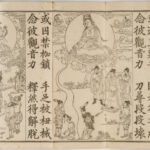 念彼觀音力 刀尋段段壞
或囚禁枷鎖 手足被杻械
念彼觀音力 釋然得解脫